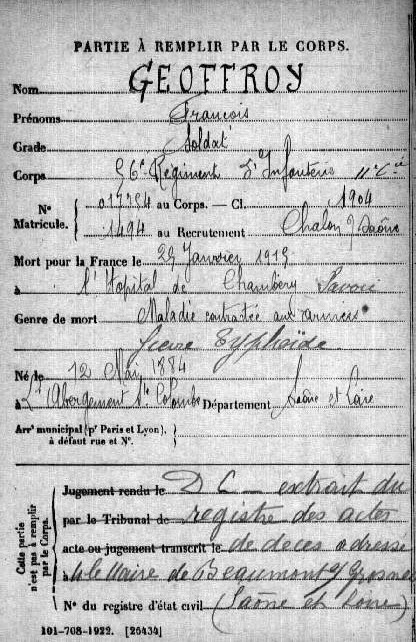 PARTIE À REMPLIR PAR LE CORPS.
Nom GEOFFROY
Prénoms François
Grade Soldat
Corps 56e Régiment d'Infanterie 11e Cie
N° Matricule. { 017254 au Corps. — Cl. 1904
1494 au Recrutement Chalon s/ Saône
Mort pour la France le 29 Janvier 1915
à l'Hopital de Chambéry Savoie
Genre de mort Maladie contractée aux armées
fièvre typhoïde
Né le 12 Mai 1884
à L'Abergement Ste Colombe Département Saône et Loire
Arrt municipal (pr Paris et Lyon), à défaut rue et N°.
Cette partie n'est pas à remplir par le Corps.
Jugement rendu le D C — extrait du
par le Tribunal de registre des actes
acte ou jugement transcrit le de décès adressé
à M le Maire de Beaumont s/ Grosne
N° du registre d'état civil (Saône et Loire)
101-708-1922. [26434]